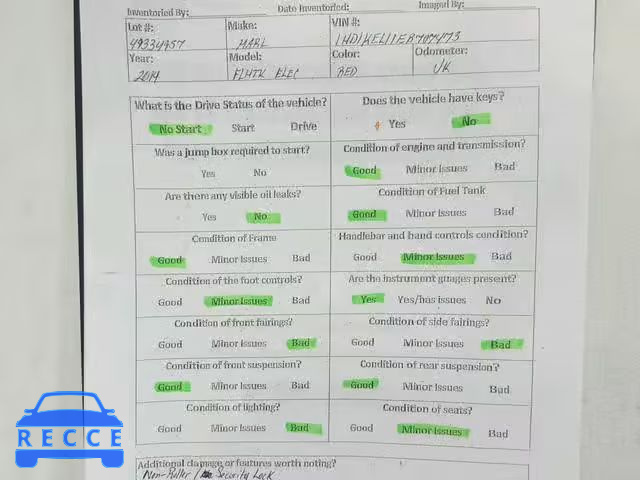 Inventoried By: Date Inventoried: Imaged By:
Lot #: Make: VIN #:
49334957 HARL
Year: Model: Color: Odometer:
2014 FLHTK ELEC RED UK
What is the Drive Status of the vehicle? Does the vehicle have keys?
No Start Start Drive Yes No
Was a jump box required to start? Condition of engine and transmission?
Yes No Good Minor Issues Bad
Are there any visible oil leaks? Condition of Fuel Tank
Yes No Good Minor Issues Bad
Condition of Frame Handlebar and hand controls condition?
Good Minor Issues Bad Good Minor Issues Bad
Condition of the foot controls? Are the instrument guages present?
Good Minor Issues Bad Yes Yes/has issues No
Condition of front fairings? Condition of side fairings?
Good Minor Issues Bad Good Minor Issues Bad
Condition of front suspension? Condition of rear suspension?
Good Minor Issues Bad Good Minor Issues Bad
Condition of lighting? Condition of seats?
Good Minor Issues Bad Good Minor Issues Bad
Additional damage or features worth noting?
Non-Puller / Security Lock
RECCE